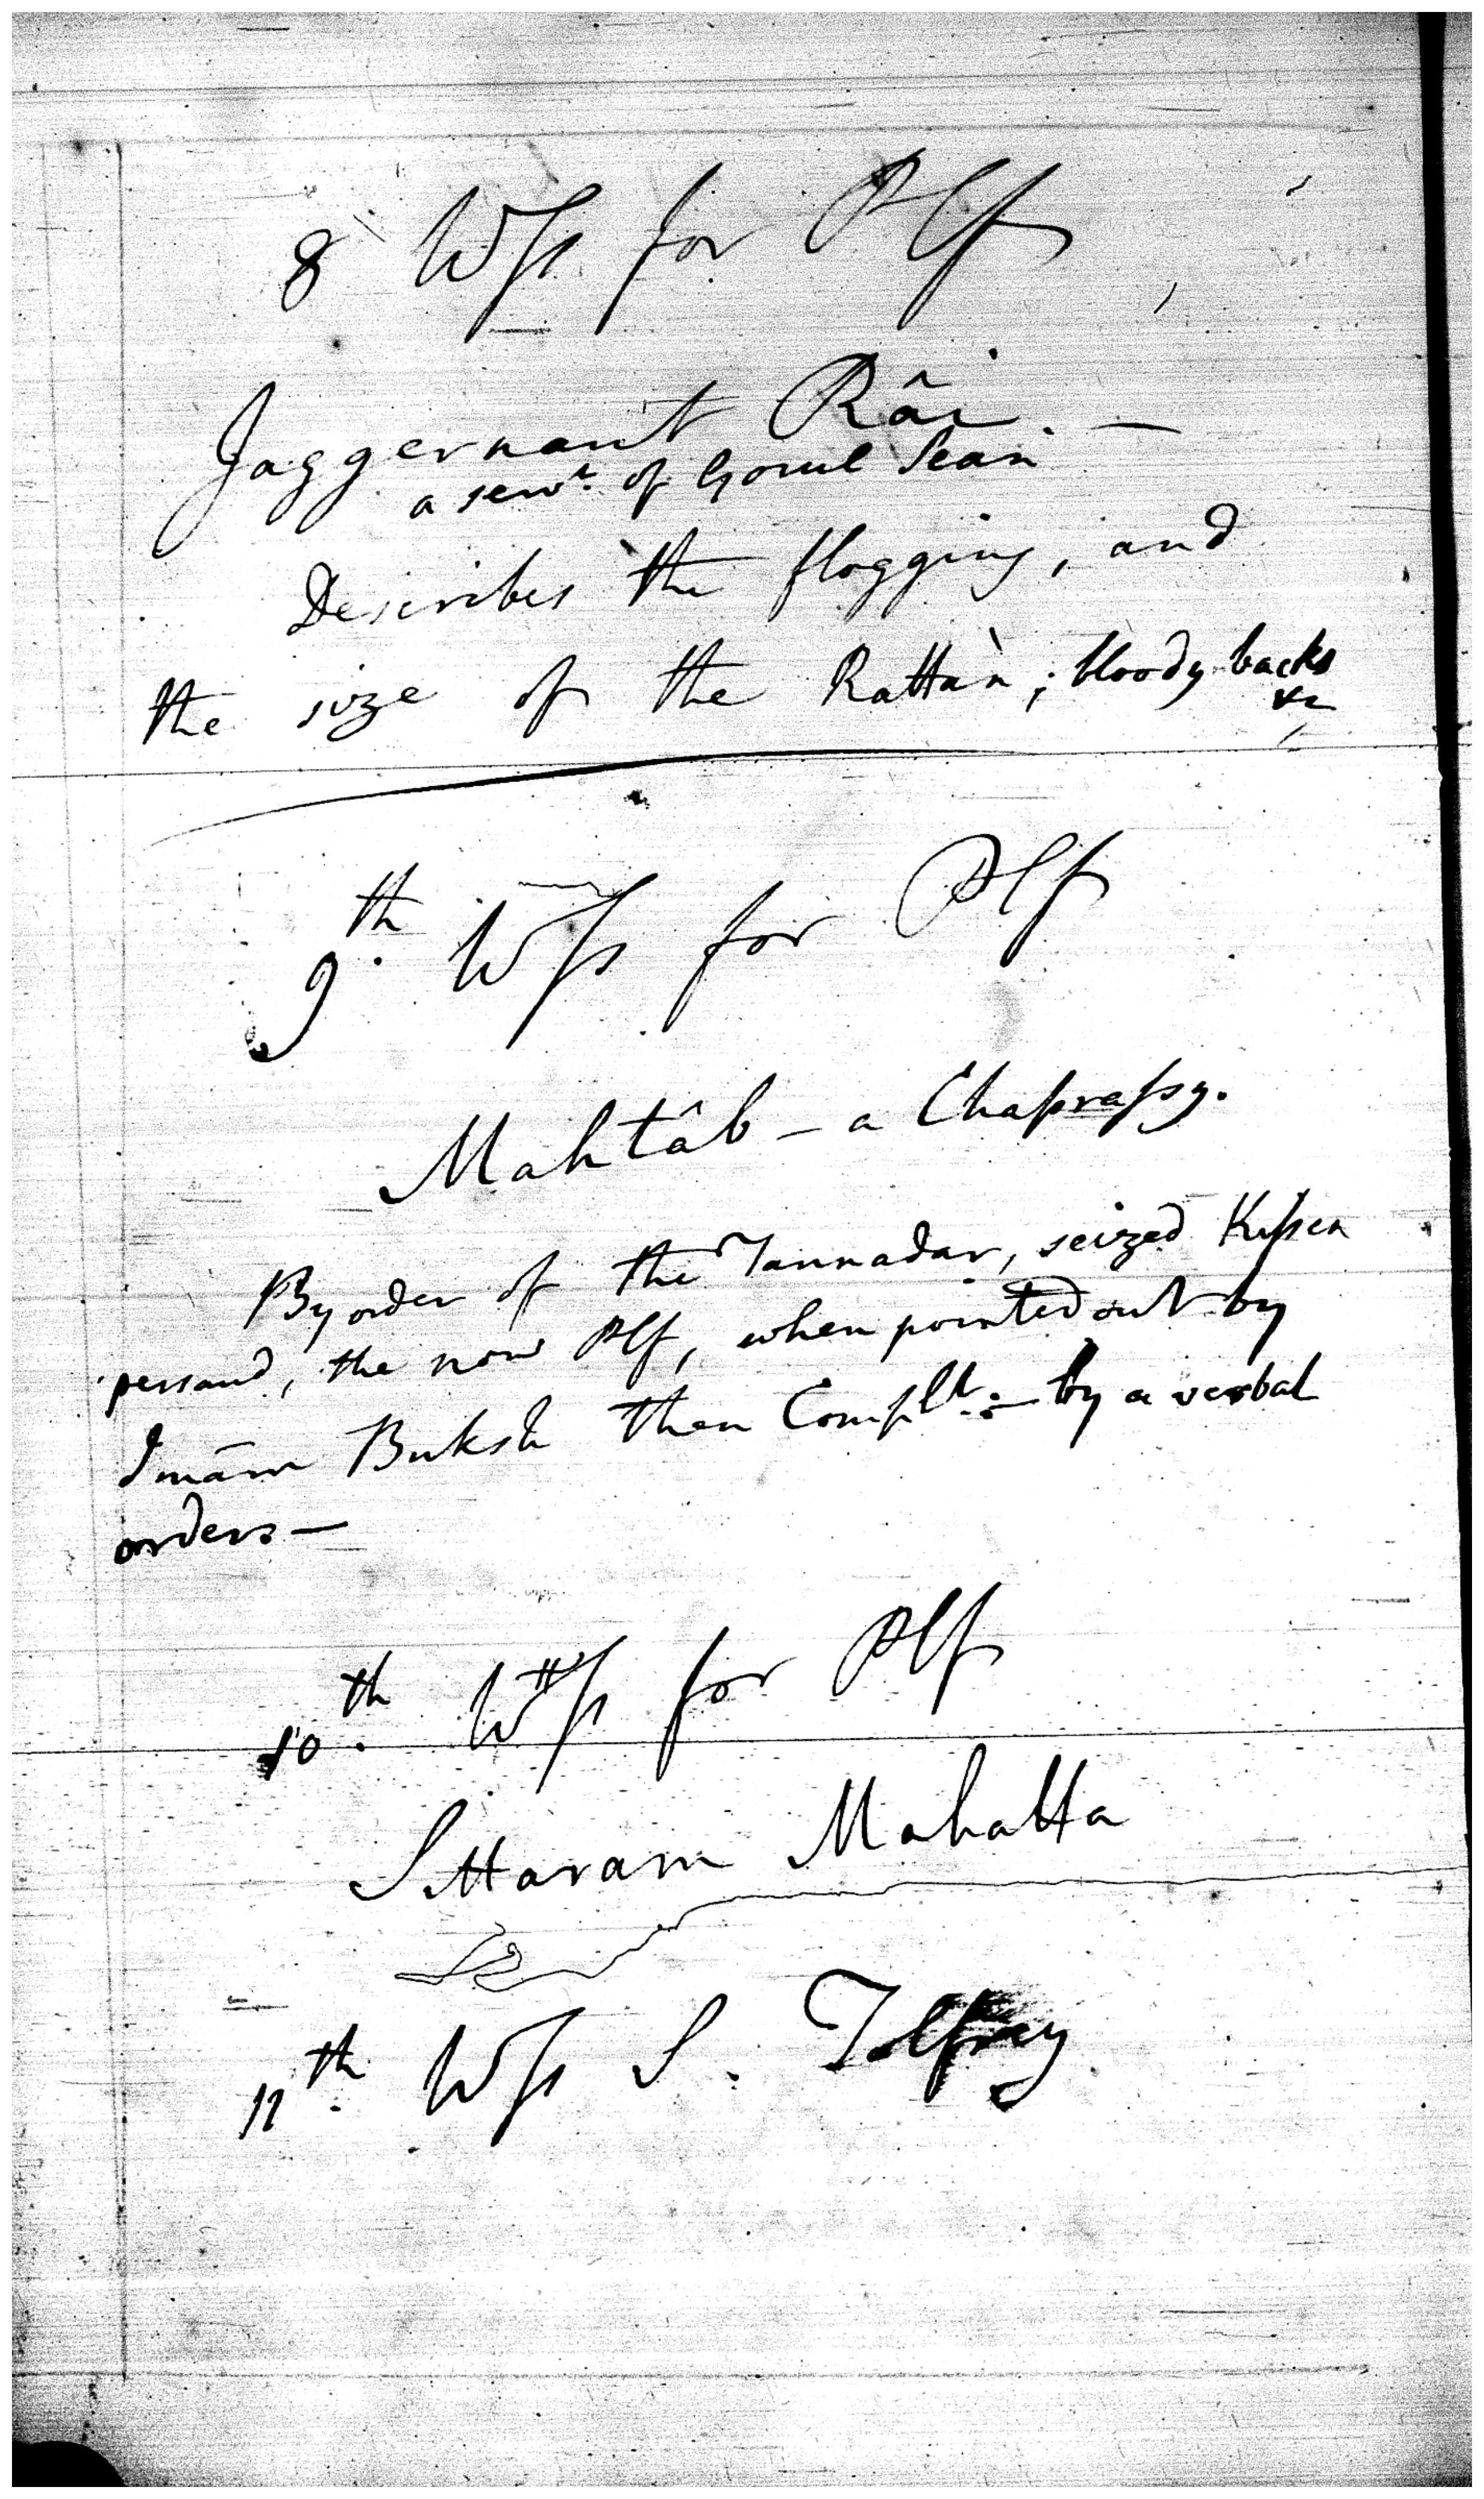 8 Wss for Plf
Jaggernaut Râi. —
a servt. of
Describes the flogging, and
the size of the Rattàn; bloody backs
&c
9th. Wss for Plf
Mahtâb — a Chaprassy.
By order of the Tannadar, seized Kissen
persaud, the now Plf, when pointed out by
Imām Buksh then Complt. — by a verbal
orders —
10th. Wss for Plf
Sittaram Mahatta
11th. Wss S. Tolfrey